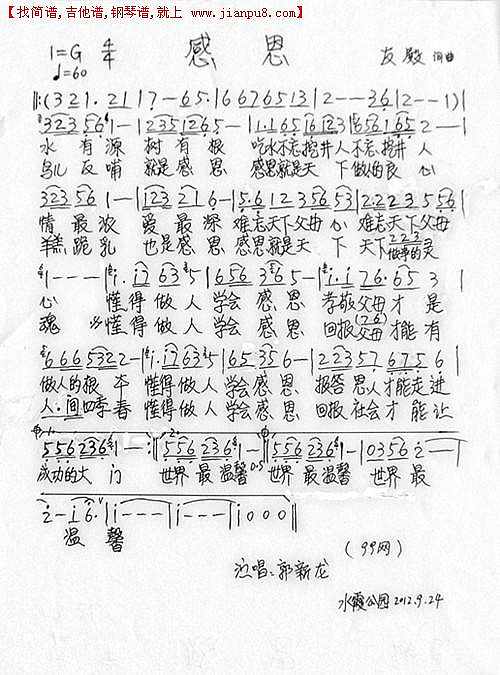 【找简谱,吉他谱,钢琴谱,就上 www.jianpu8.com】
1=G 4/4
感恩
友殿 词曲
♩=60
‖:(3 2 1. 2 1 | 7 — 6 5. | 6 6 7 6 5 1 3 | 2 - - 3 6 | 2 - - 1)|
3 2 3 5 6 1 — | 2 3 5 1 2 6 5 — | 1. 1 6 5 1 6 1 2 3 | 6 5 6 1 6 5 2 — |
水 有 源 树 有 根 吃水不忘挖井人 不忘挖井 人
鸟儿 反 哺 就是 感 恩 感恩就是天 下 做人的良 心
3 2 3 5 6 1 — | 1 2 3 2 1 6 — | 5. 6 1 2 3 5 6 5 3 | 2. 2 2 3 5 5 6 |
情 最 浓 爱 最 深 难忘天下父母 心 难忘天下父母
羊羔 跪 乳 也 是感 恩 感恩就是天 下 天下 2 2 3 做事的灵
1 - - - | i. i 3 6 3 5 — | 6 5 6 3 6 5 — | i. i 7 6. 6 5 3 |
心 懂得 做 人 学会 感 恩 孝敬 父母 才 是
魂 懂得 做 人 学会 感 恩 回报 (7 6) 父母 才能 有
6 6 6 5 3 2 2 — | i. i 7 6 3 5 — | 6 5 3 5 6 — | 2 2 3 5 7 6 7 5 6 |
做人的根 本 懂得 做 人 学会 感 恩 报答 恩人才能走进
人.间四季春 懂得 做 人 学会 感 恩 回报 社会才 能 让
5 5 6 2 3 6 1 — :‖ 5 5 6 2 3 6 1 — ‖ 5 5 6 2 3 6 1 — | 0 3 5 6 2 — |
成功的大 门 世界 最 温馨 D.S 世界 最 温馨 世界 最
2 — i 6. | i - - - | i - - - | i 0 0 0 ‖
温 馨
(99网)
演唱:郭新龙
水霞公园 2012.9.24